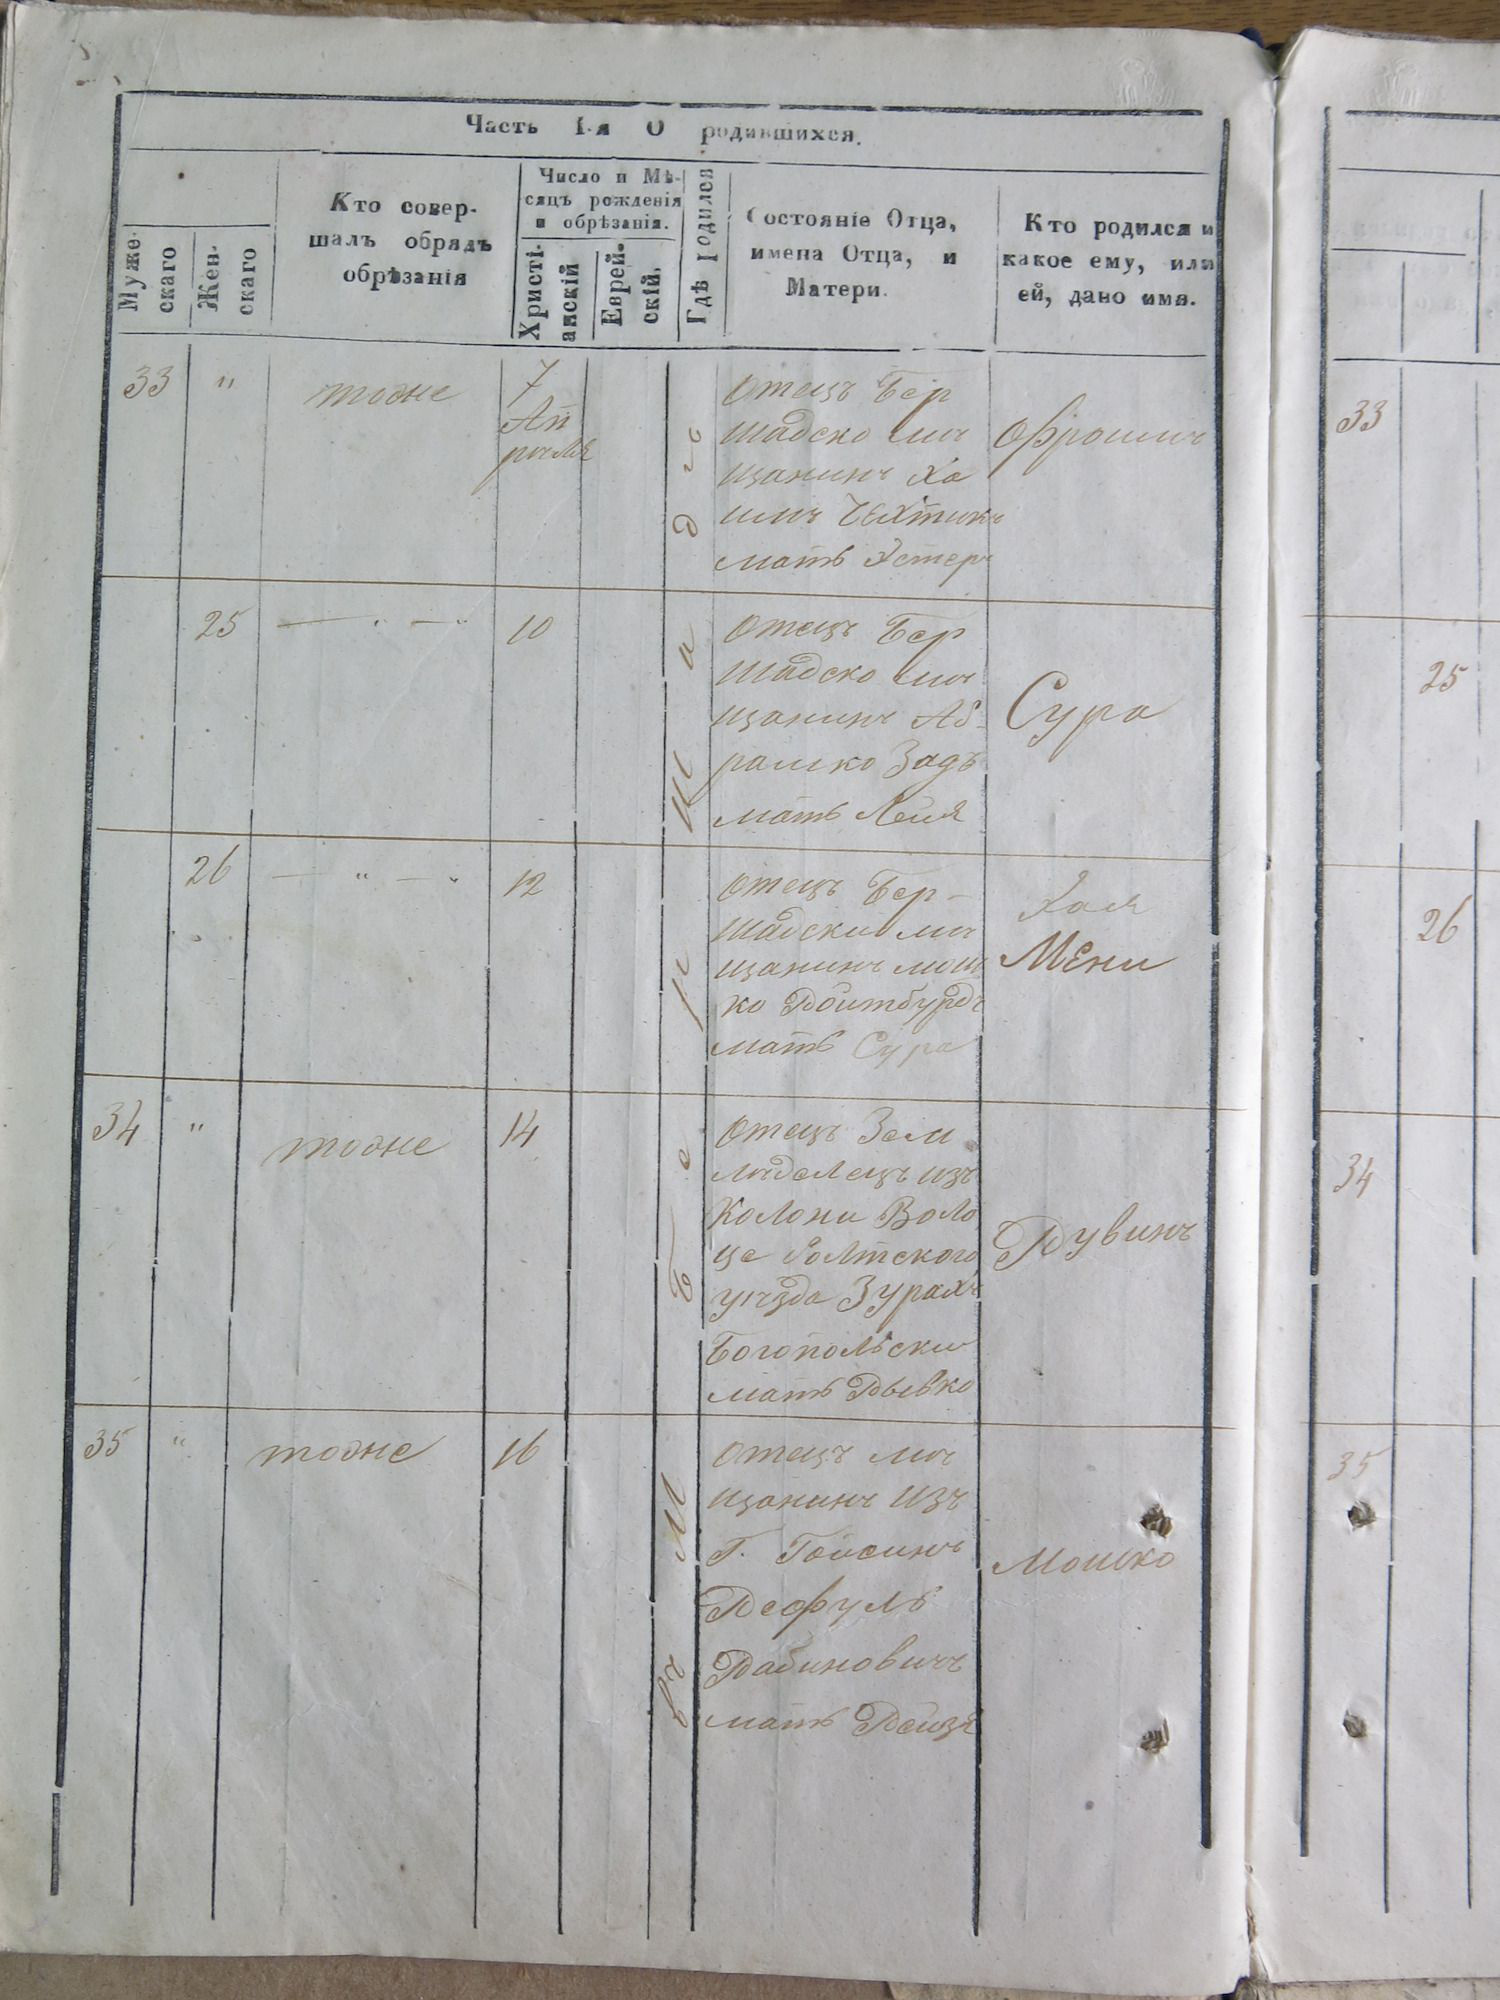 Часть I-я О родившихся.
Муже-
скаго
Жен-
скаго
Кто совер-
шалъ обрядъ
обрѣзанія
Число и Мѣ-
сяцъ рожденія
и обрѣзанія.
Христі-
анскій
Еврей-
скій.
Гдѣ родился
Состояніе Отца,
имена Отца, и
Матери.
Кто родился и
какое ему, или
ей, дано имя.
въ М. Бершадѣ
33 " тоже 7
Ап
рѣля
Отецъ Бер
шадско мѣ
щанинъ Ха
имъ
мать Эстеръ
Офроимъ
25 — " — " 10
Отецъ Бер
шадско мѣ
щанинъ Аб-
рамко Задъ
мать Лейя
Сура
26 — " — " 12
Отецъ Бер-
шадски мѣ
щанинъ Мош
ко Ройтбурдъ
мать Сура
Хая
Мени
34 " тоже 14
Отецъ Земл
лѣделецъ изъ
Колони Воло
це Болтского
уѣзда Зурахъ
Богопольски
мать Рывко
Рувинъ
35 " тоже 16
Отецъ мѣ
щанинъ изъ
Г. Гойсинъ
Рефуль
Рабиновичъ
мать Рейзя
Мошко
33
25
26
34
35